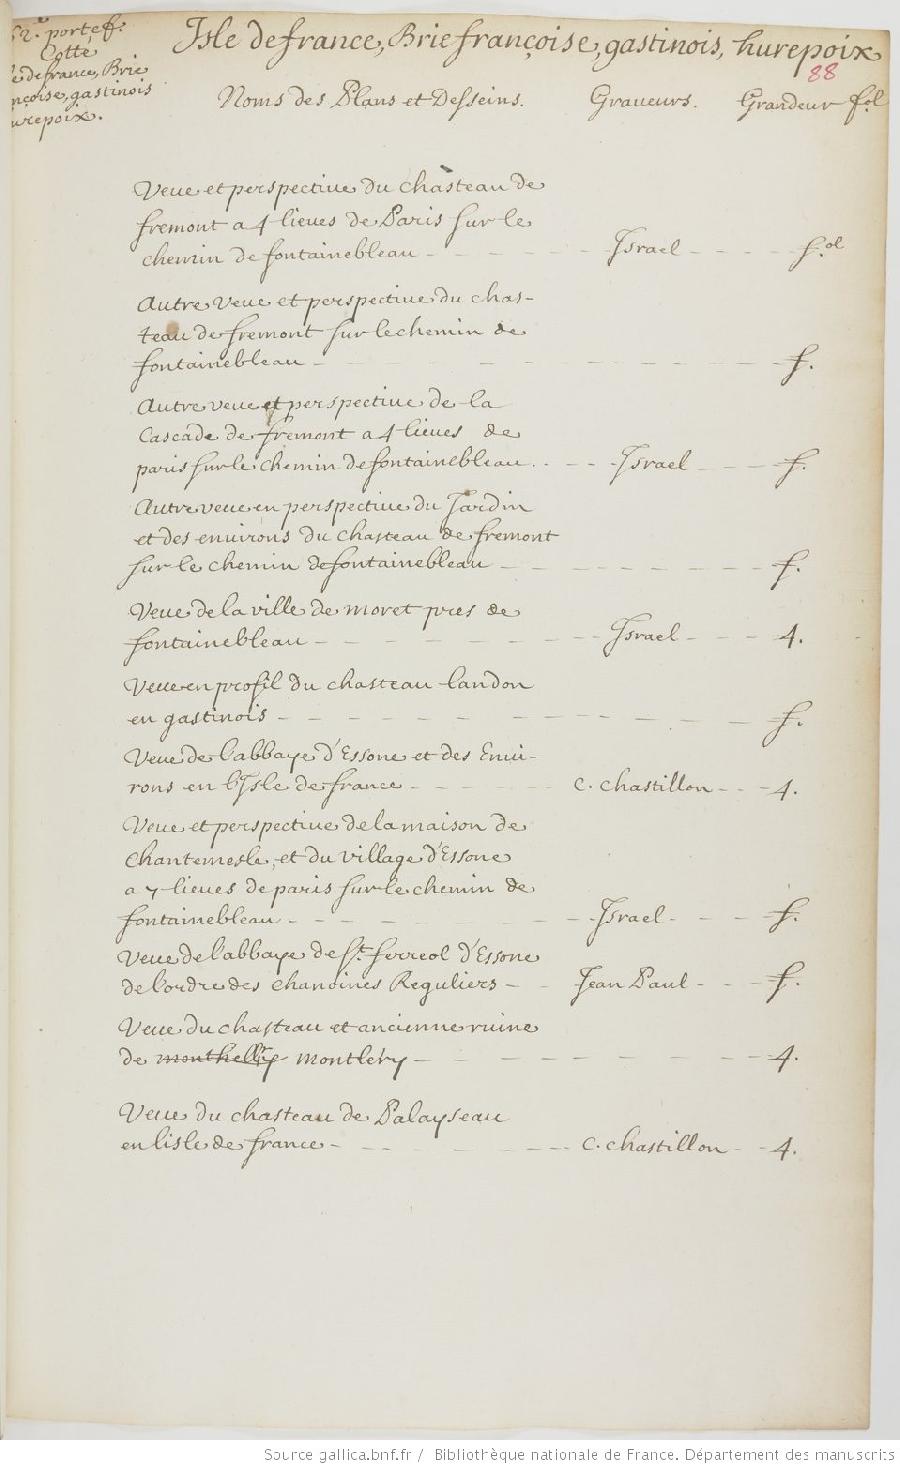 52e. portef.
Cotté
e de france, Brie
nçoise, gastinois
urepoix.
Isle de france, Brie françoise, gastinois, hurepoix
88
Noms des Plans et Desseins. Graueurs. Grandeur fol
Veue et perspectiue du chasteau de
fremont a 4 lieues de Paris sur le
chemin de fontainebleau - - - - - Israel - - - - fol
Autre veue et perspectiue du chas-
teau de fremont sur le chemin de
fontainebleau - - - - - - - - - f.
Autre veue et perspectiue de la
Cascade de fremont a 4 lieues de
paris sur le chemin de fontainebleau. - - - Israel - - - f.
Autre veue en perspectiue du Jardin
et des enuirons du chasteau de fremont
sur le chemin de fontainebleau - - - - - - - - - f.
Veue de la ville de moret pres de
fontainebleau - - - - - - - - - Israel - - - 4.
Veue en profil du chasteau landon
en gastinois - - - - - - - - - - - - f.
Veue de l'abbaye d'Essone et des Enui-
rons en l'Isle de france - - - - - c. chastillon - - - 4.
Veue et perspectiue de la maison de
Chantemesle, et du village d'Essone
a 7 lieues de paris sur le chemin de
fontainebleau - - - - - - - - Israel - - - - f.
Veue de l'abbaye de St. ferreol d'Essone
de l'ordre des Chanoines Reguliers - - Jean Paul - - - f.
Veue du chasteau et ancienne ruine
de monthellry montlery - - - - - - - - - 4.
Veue du chasteau de Palayseau
en lisle de france - - - - - - - c. chastillon - - 4.
Source gallica.bnf.fr / Bibliothèque nationale de France. Département des manuscrits